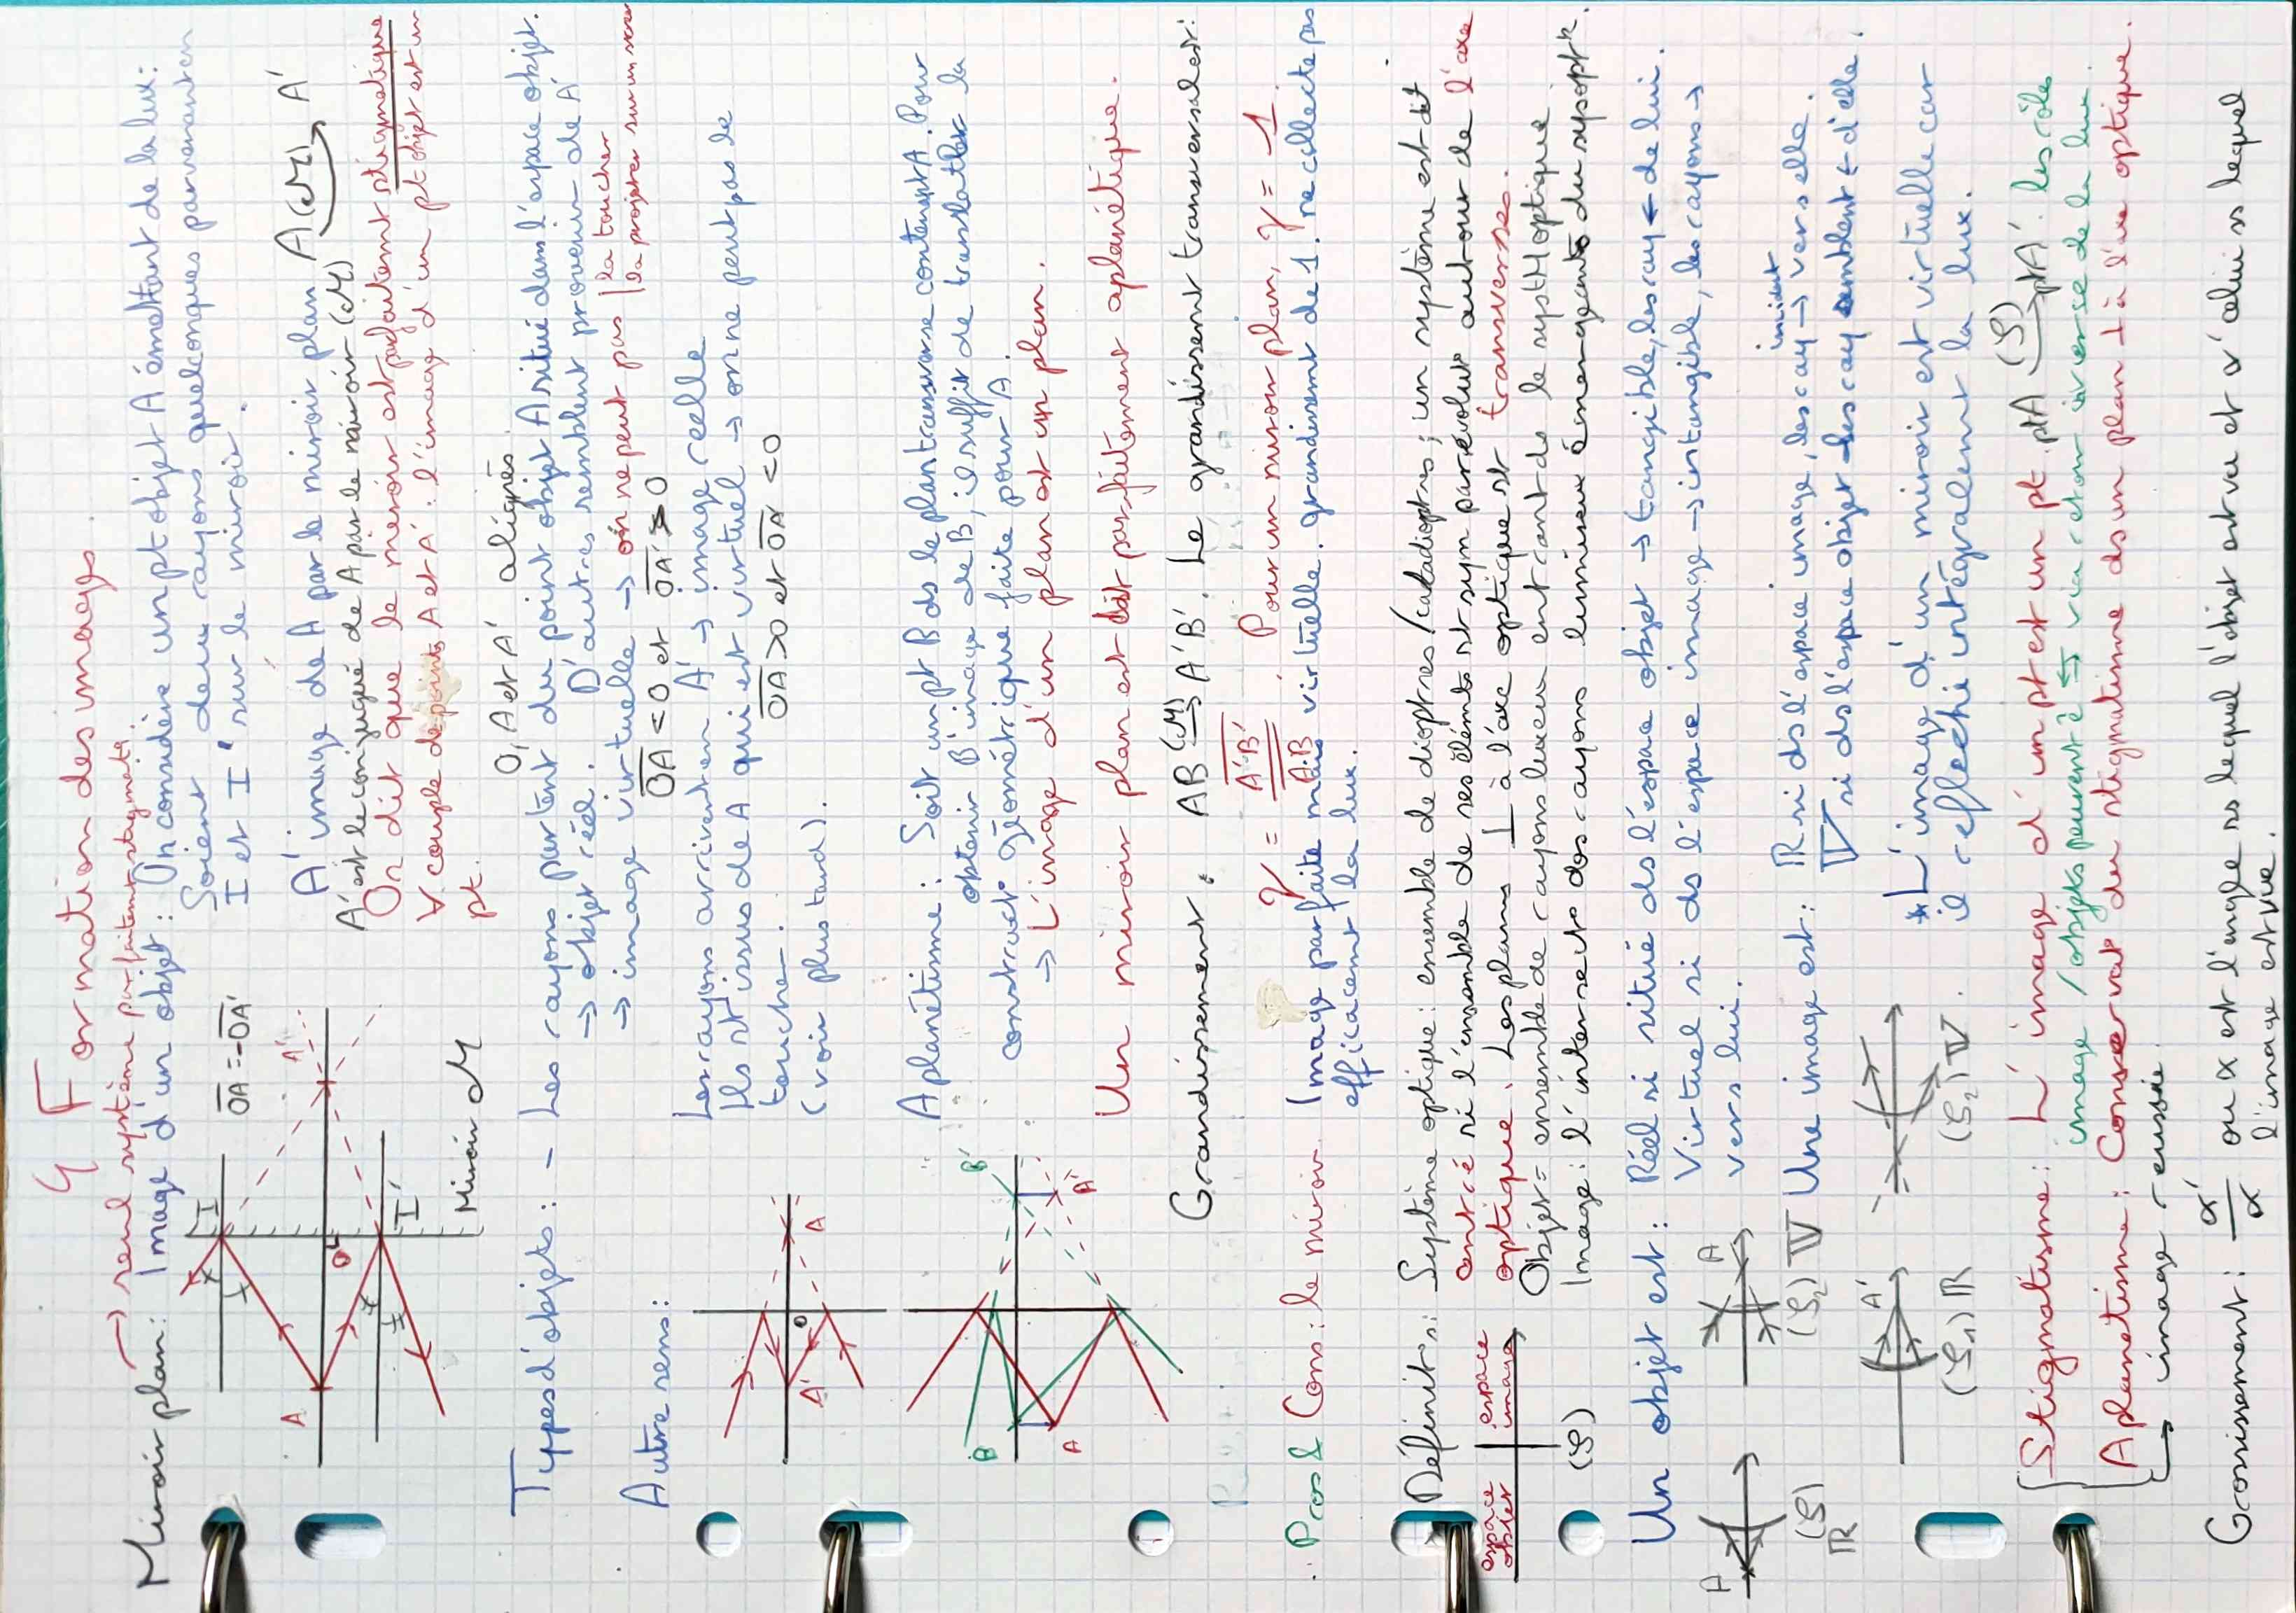 G Formation des images.
→ seul système parfaitement stigmate.
Miroir plan: Image d'un objet: On considère un pt objet A émettant de la lux:
Soient deux rayons quelconques parvenant en
I et I' sur le miroir.
OA = -OA'
I
A
A'
O
I'
Miroir M
A' image de A par le miroir plan A (M) → A'
A' est le conjugué de A par le miroir (M)
On dit que le miroir est parfaitement stigmatique
∀ couple de points A et A': l'image d'un pt objet est un
pt.
O, A et A' alignés.
Types d'objets: - Les rayons partent du point objet A situé dans l'espace objet.
→ objet réel. D'autres semblent provenir de A'
→ image virtuelle → on ne peut pas | la toucher
| la projeter sur un
OA < 0 et OA' > 0
Autre sens:
Les rayons arrivent en A' → image réelle
Ils st issus de A qui est virtuel → on ne peut pas le
toucher.
OA > 0 et OA' < 0
(voir plus tard).
A'
O
A
Aplanétisme: Soit un pt B ds le plan transverse contenant A. Pour
obtenir B' image de B, il suffit de translater la
construct° géométrique faite pour A.
→ L'image d'un plan est un plan.
B
A
B'
A'
Un miroir plan est dit parfaitement aplanétique.
Grandissement. AB (M) → A'B'. Le grandissement transversal est:
γ = A'B' / AB Pour un miroir plan, γ = 1.
Pros & Cons: le miroir. Image parfaite mais virtuelle. grandissement de 1. ne collecte pas
efficacement la lux.
Définit°s: Système optique: ensemble de dioptres/catadioptres; un système est dit
centré si l'ensemble de ses éléments st sym par évolut° autour de l'axe
optique. Les plans ⊥ à l'axe optique st transverses.
Objet = ensemble de rayons lumineux entrants ds le syst optique.
Image: l'intersect° des rayons lumineux émergeants du syst opt.
espace objet
espace image
(S)
Un objet est: Réel si situé ds l'espace objet → tangible, les ray ← de lui.
Virtuel si ds l'espace image → intangible, les rayons →
vers lui.
A
(S) R
A
(S2) V
Une image est: R si ds l'espace image, les ray incident → vers elle.
V si ds l'espace objet les ray semblent ← d'elle.
A'
(S1) R
(S2) V.
* L'image d'un miroir est virtuelle car
il réfléchi intégralement la lux.
Stigmatisme: L'image d'un pt est un pt. ptA (S) → ptA'. les rôle
image/objets peuvent ê ⇆ via retour inverse de la lum.
Aplanétisme: Conservat° du stigmatisme ds un plan ⊥ à l'axe optique.
↳ image réussie.
Grossissement: α'/α ou α est l'angle ss lequel l'objet est vu et α' celui ss lequel
l'image est vue.